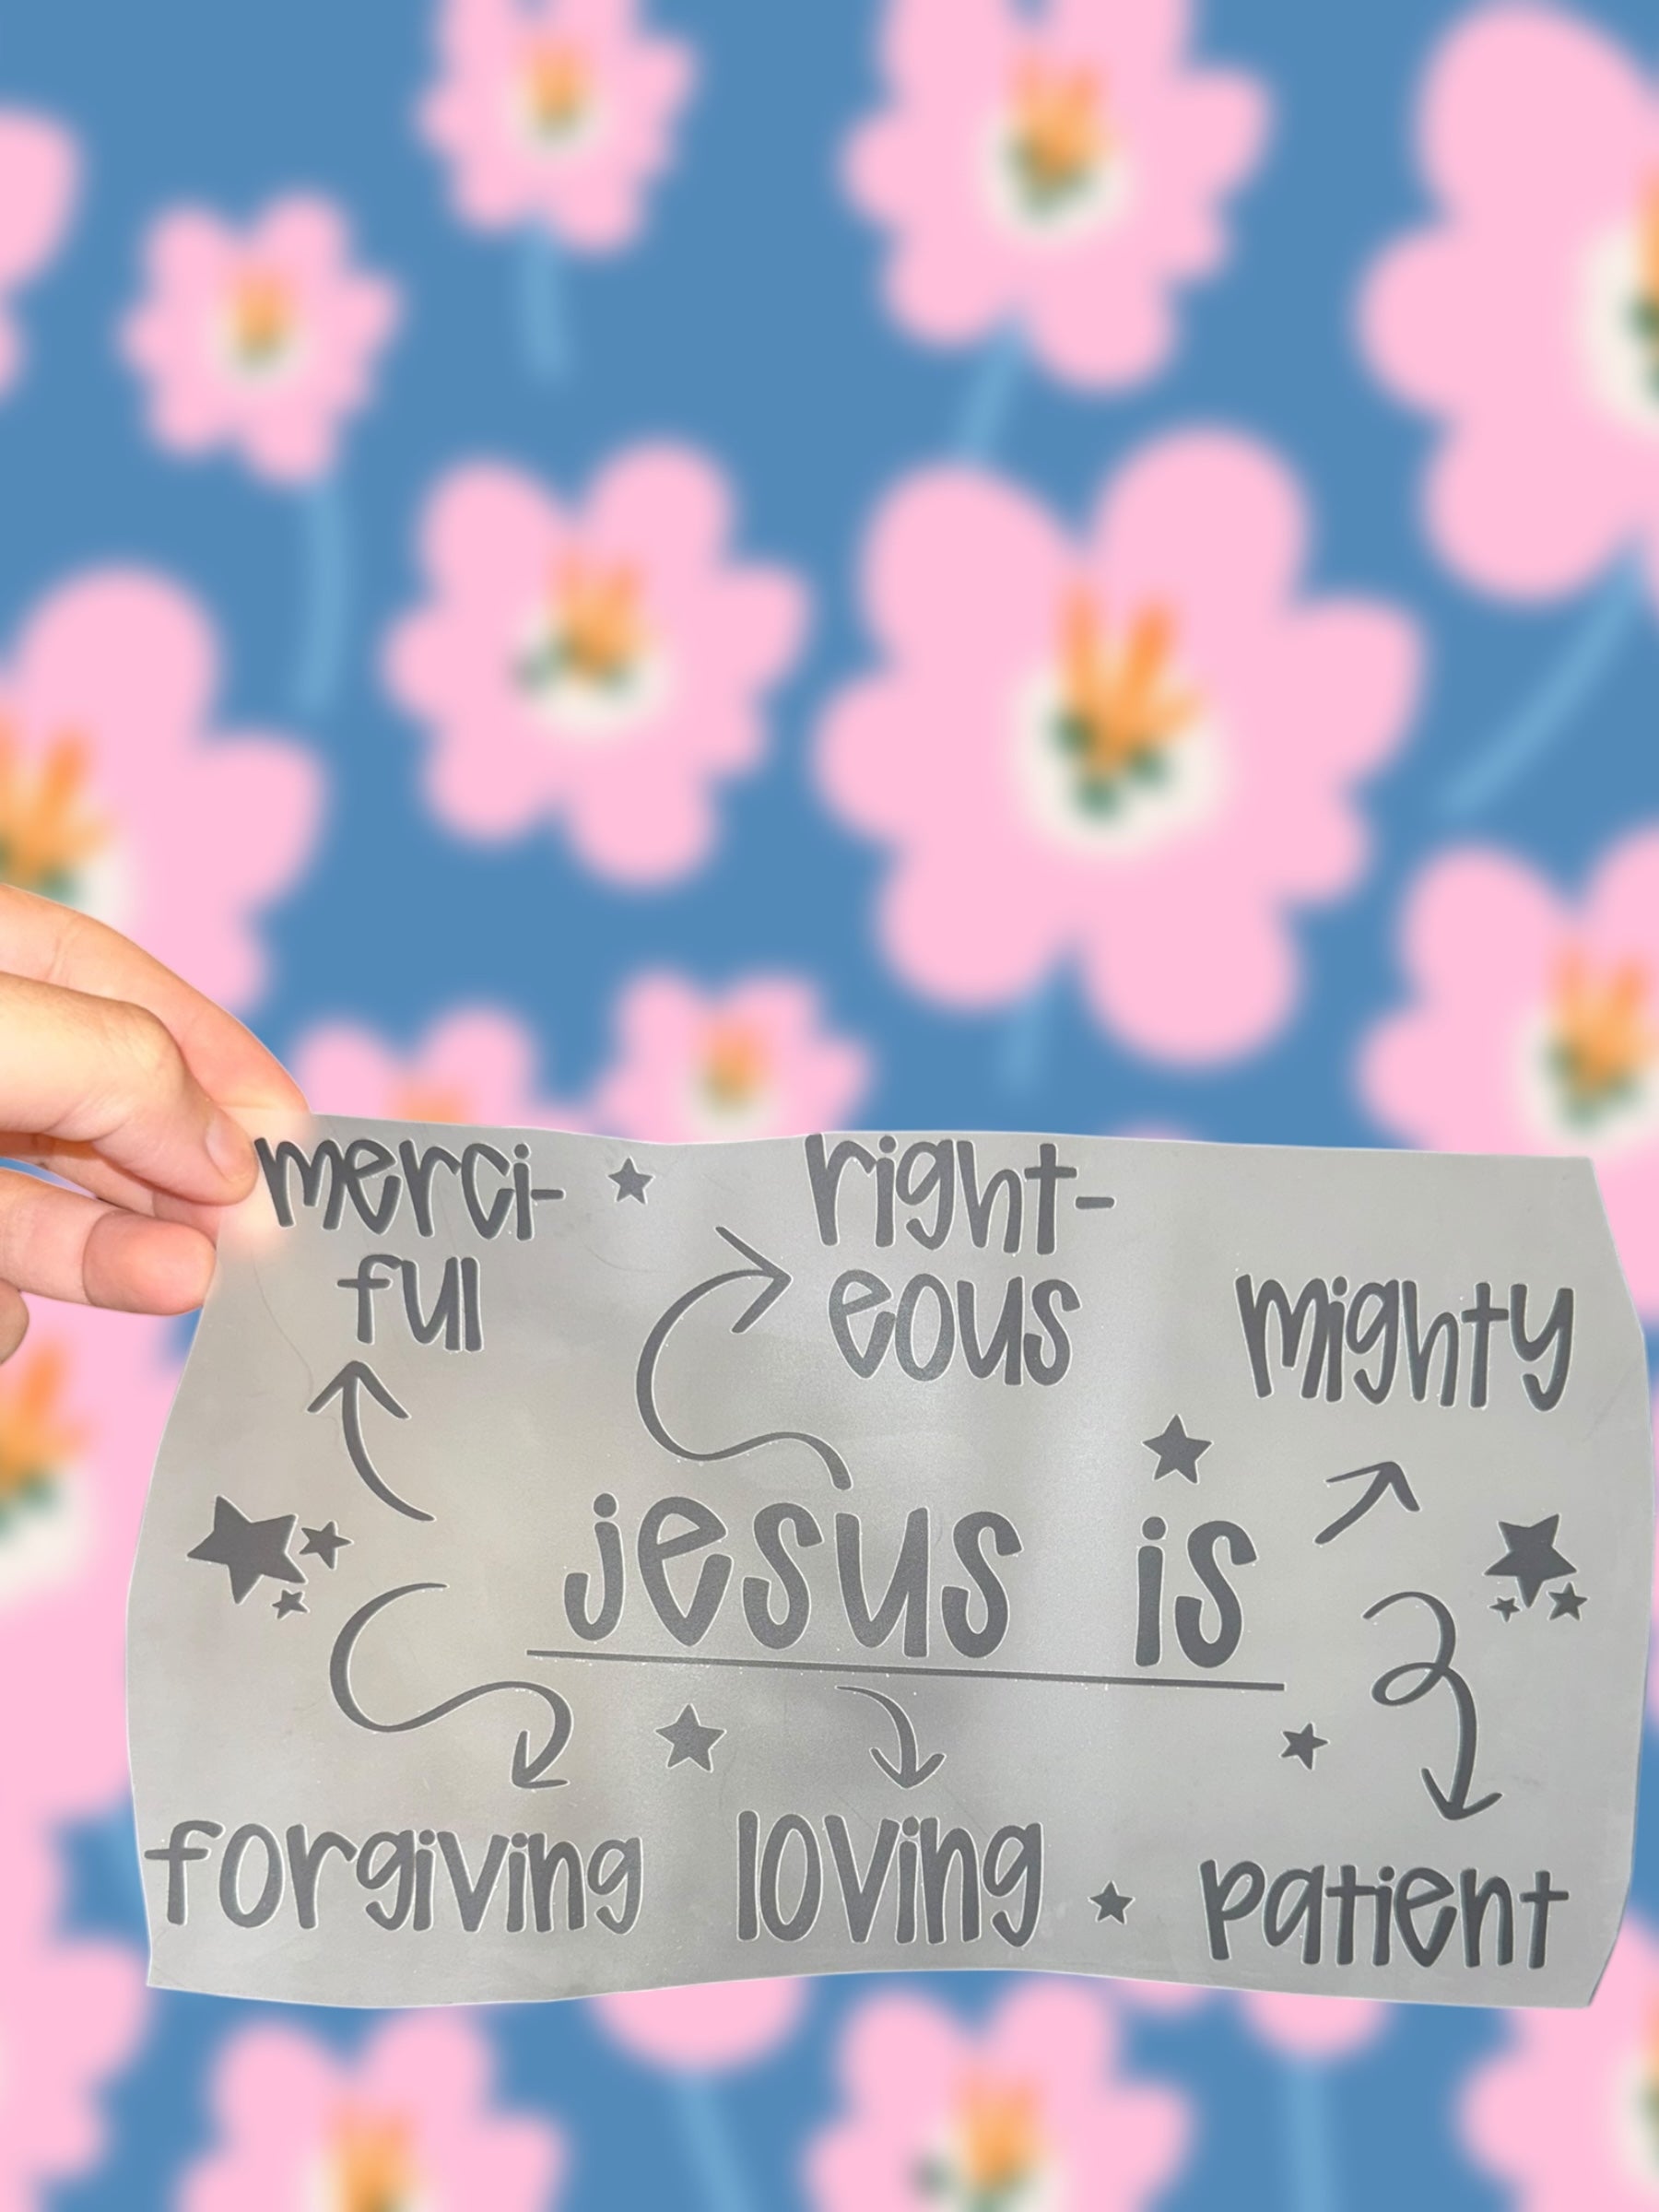 merci-
ful
right-
eous
mighty
jesus is
forgiving
loving
patient